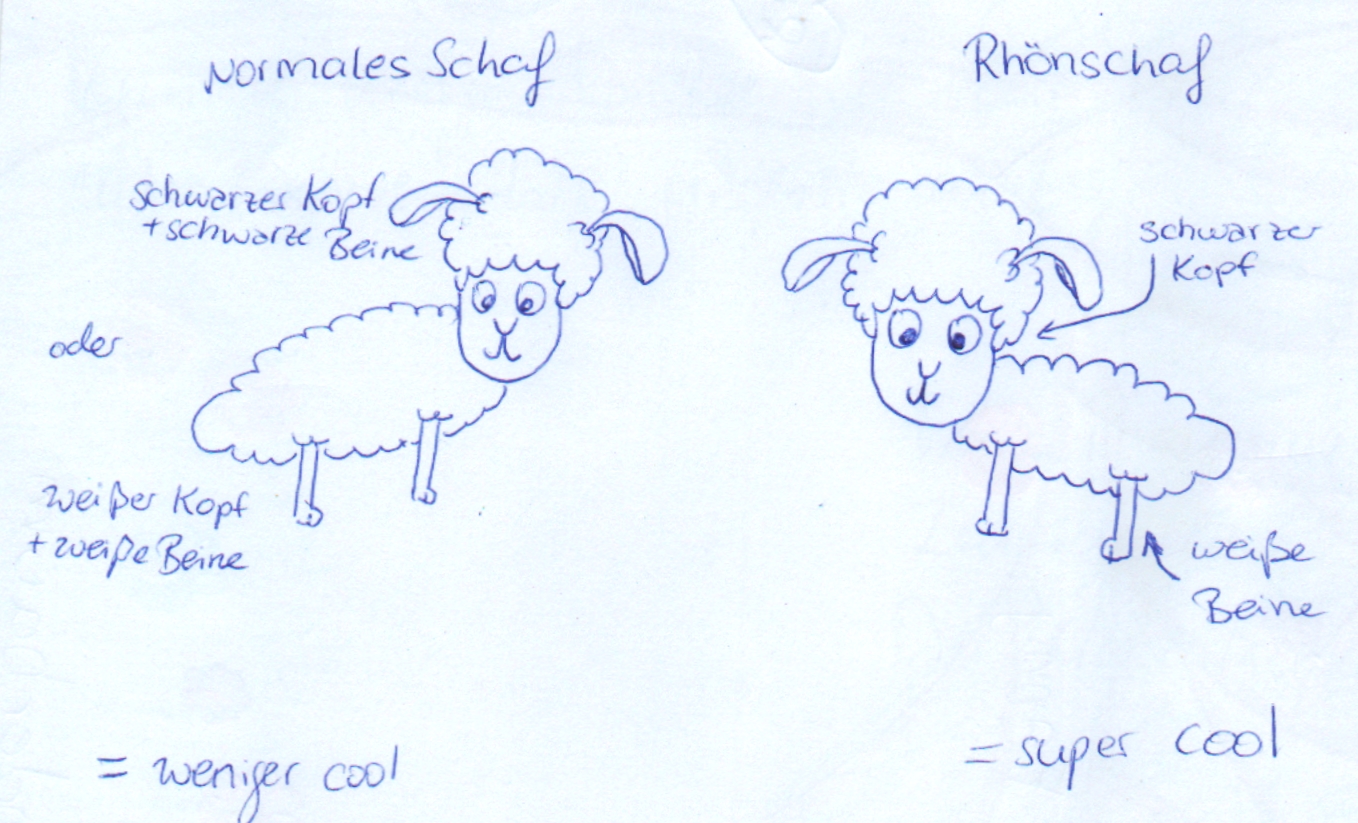 Normales Schaf
schwarzer Kopf
+schwarze Beine
oder
weißer Kopf
+weiße Beine
= weniger cool
Rhönschaf
schwarzer
Kopf
weiße
Beine
= super cool